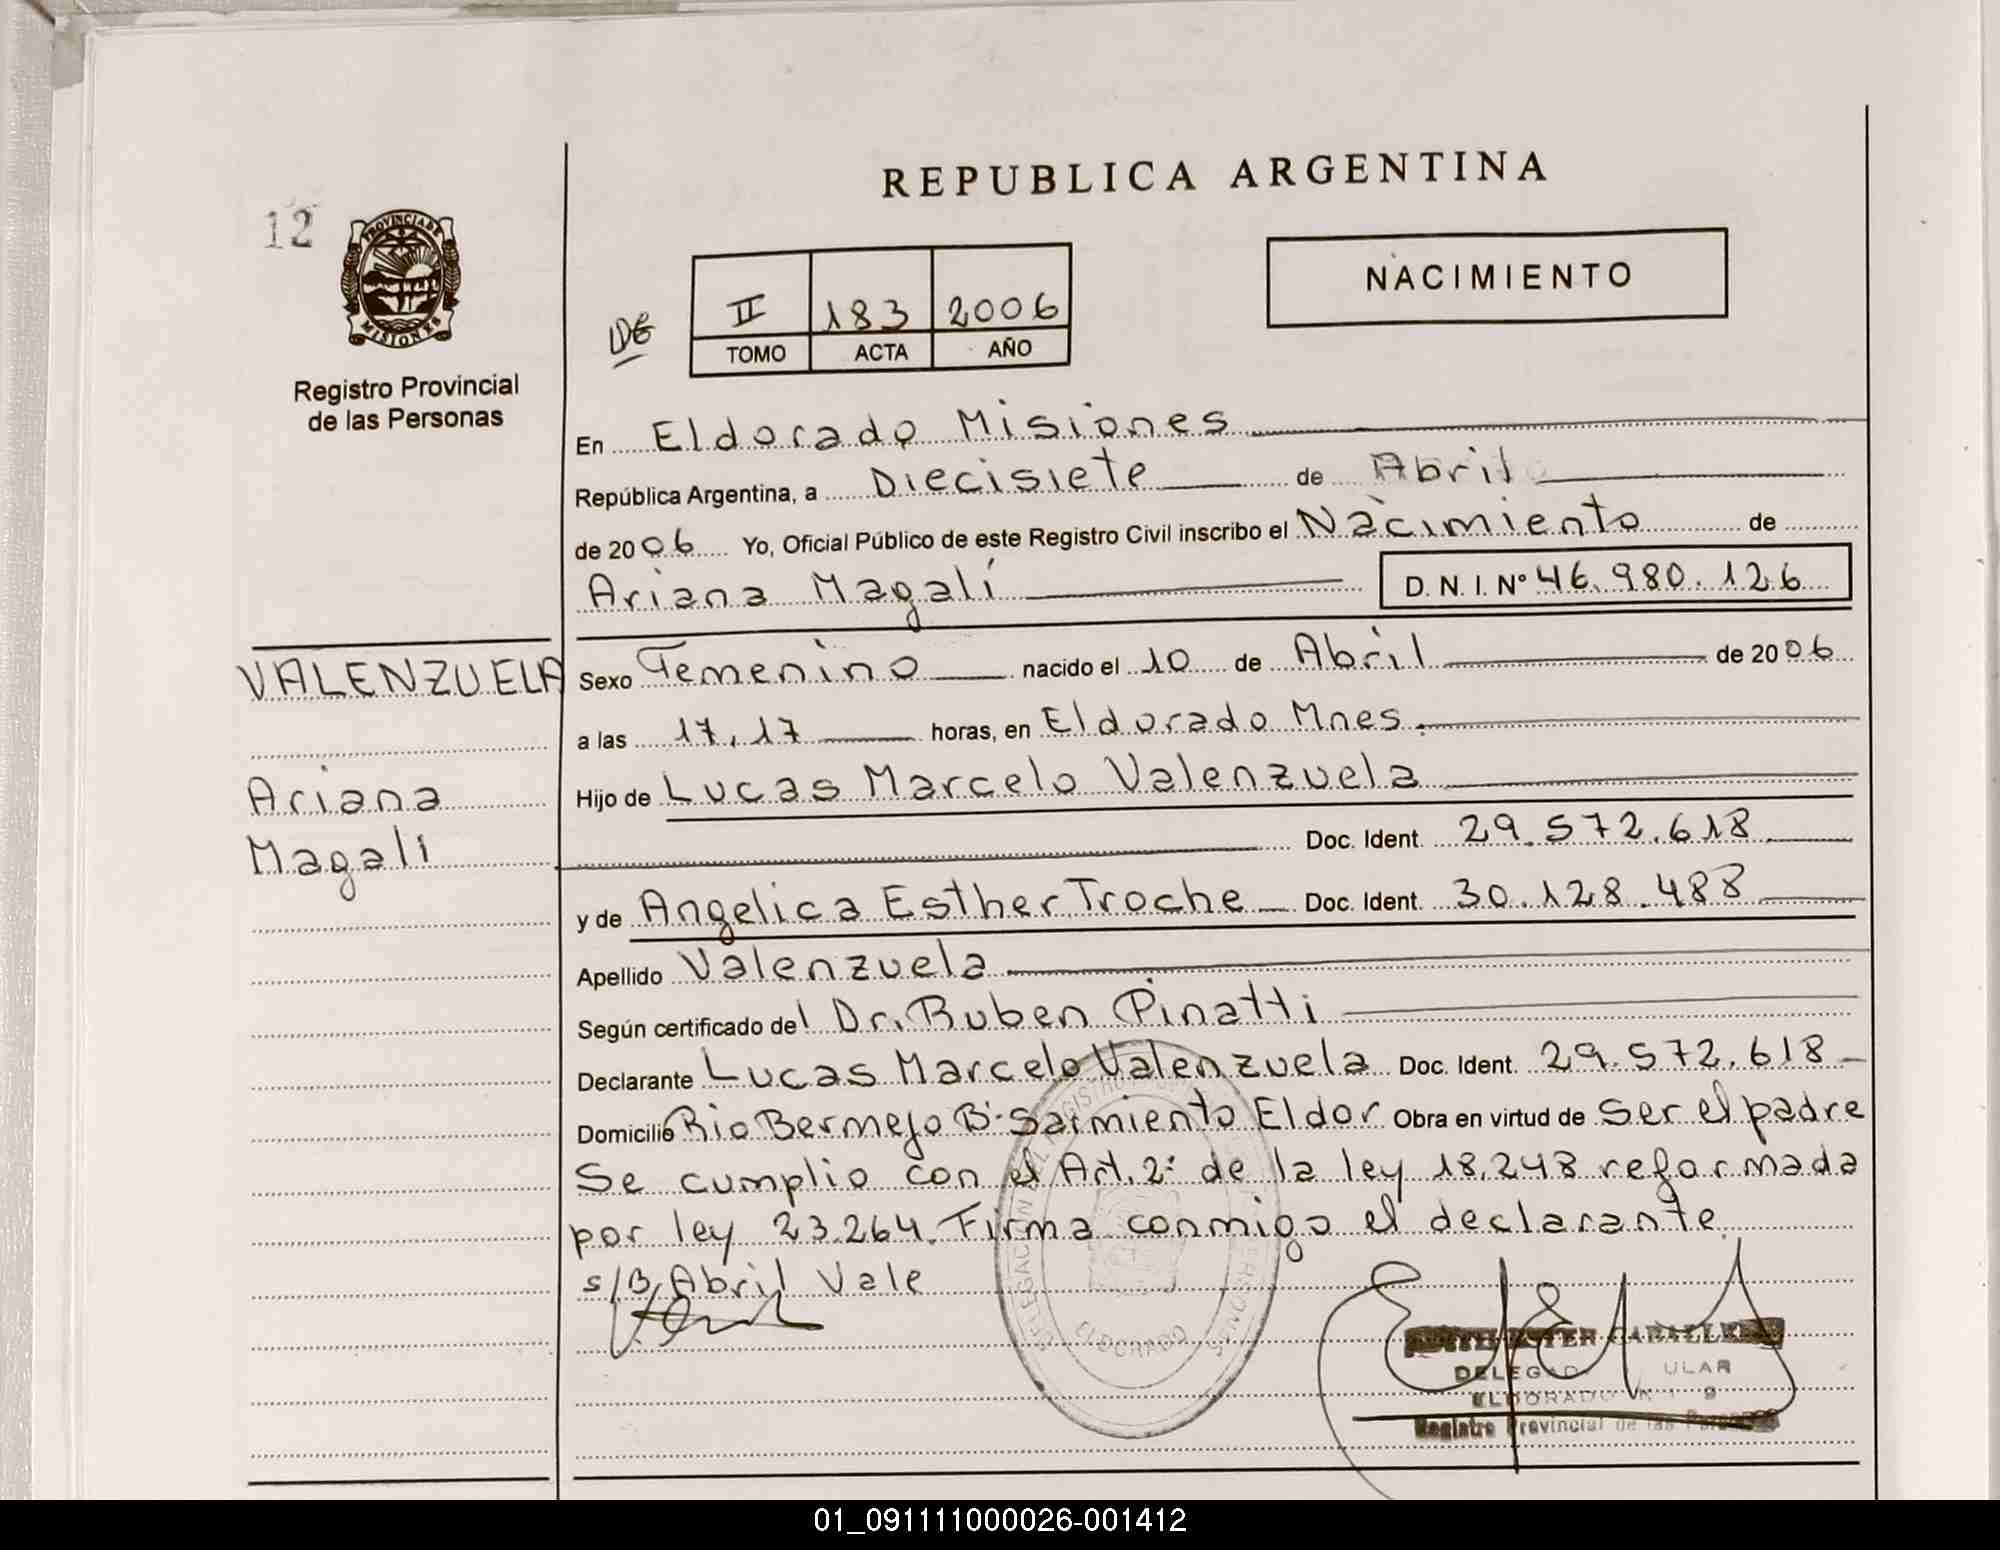 REPUBLICA ARGENTINA
12
PROVINCIA DE
MISIONES
Registro Provincial
de las Personas
NACIMIENTO
DE
II 183 2006
TOMO ACTA AÑO
En Eldorado Misiones
República Argentina, a Diecisiete de Abril
de 2006 Yo, Oficial Público de este Registro Civil inscribo el Nacimiento de
Ariana Magalí D. N. I. Nº 46.980.126
VALENZUELA
Ariana
Magali
Sexo Femenino nacido el 10 de Abril de 2006
a las 17,17 horas, en Eldorado Mnes.
Hijo de Lucas Marcelo Valenzuela
Doc. Ident. 29.572.618
y de Angelica Esther Troche Doc. Ident. 30.128.488
Apellido Valenzuela
Según certificado del Dr. Ruben Pinatti
Declarante Lucas Marcelo Valenzuela Doc. Ident. 29.572.618
Domicilio Rio Bermejo Bº Sarmiento Eldor Obra en virtud de Ser el padre
Se cumplio con el Art. 2º de la ley 18.248 reformada
por ley 23.264. Firma conmigo el declarante
s/B, Abril Vale
ELDORADO
ESTER CABALLERO
ELDORADO
Registro Provincial de las Personas
01_091111000026-001412